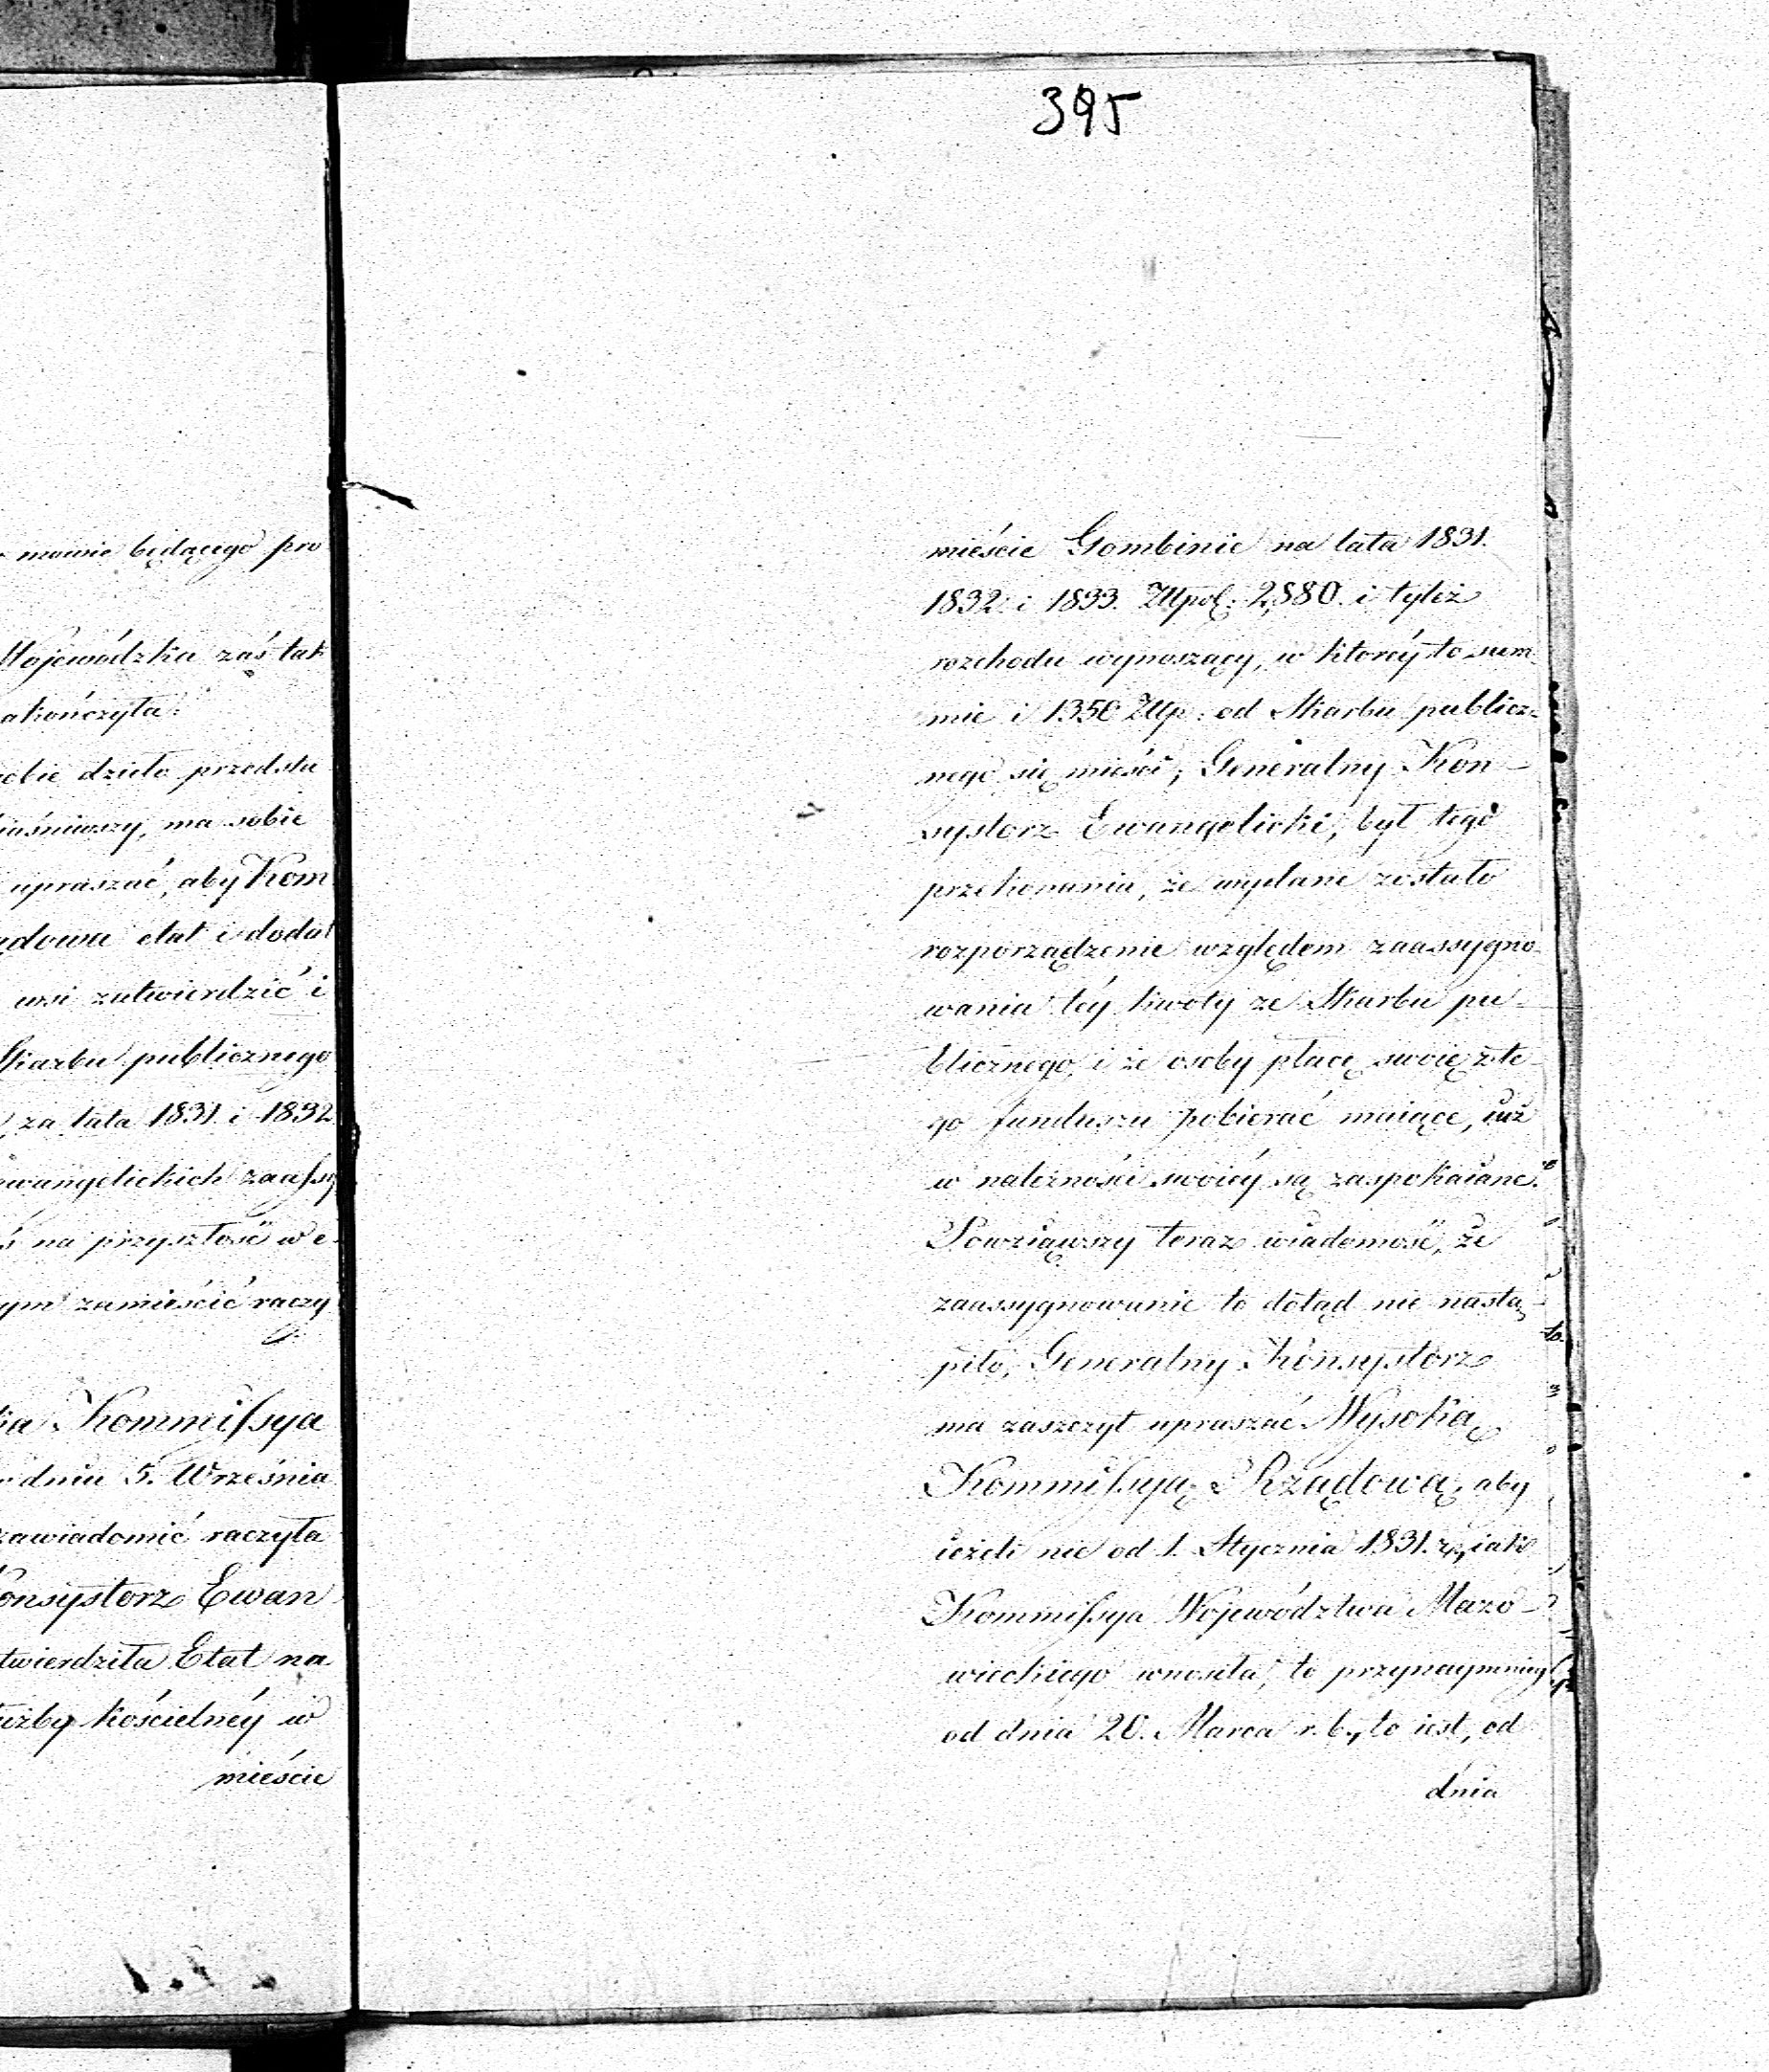 mowie będącego pro
Wojewódzka zaś tak
akończyła:
obie dzieło przedsta
iaśniwszy, ma sobie
upraszać, aby Kom
ądowa etat i dodat
usi zatwierdzić i
Skarbu publicznego
za lata 1831 i 1832
wangelickich zaaſsy
ś na przyszłość w e
ym zamieścić raczy
ka Kommiſsya
dniu 5. Września
zawiadomić raczyła
Konsystorz Ewan
twierdziła Etat na
użby kościelnéy w
mieście
395
mieście Gombinie na lata 1831.
1832. i 1833. Złpol: 2,880. i tyleż
rozchodu wynoszący, w któréy to sum-
mie i 1350 Złp: od Skarbu publicz-
nego się mieści, Generalny Kon-
systorz Ewangelicki, był tego
przekonania, że wydane zostało
rozporządzenie względem zaassygno-
wania téy kwoty ze Skarbu pu-
blicznego, i że osoby płacę swoię z te-
go funduszu pobierać maiące, iuż
w należności swoiéy są zaspokaiane.
Powziąwszy teraz wiadomość, że
zaassygnowanie to dotąd nie nastą-
piło, Generalny Konsystorz
ma zaszczyt upraszać Wysoką
Kommiſsyą Rządową, aby
ieżeli nie od 1. Stycznia 1831. r., iak
Kommiſsya Województwa Mazo-
wieckiego wnosiła, to przynaymniéy
od dnia 20. Marca r. b., to iest, od
dnia